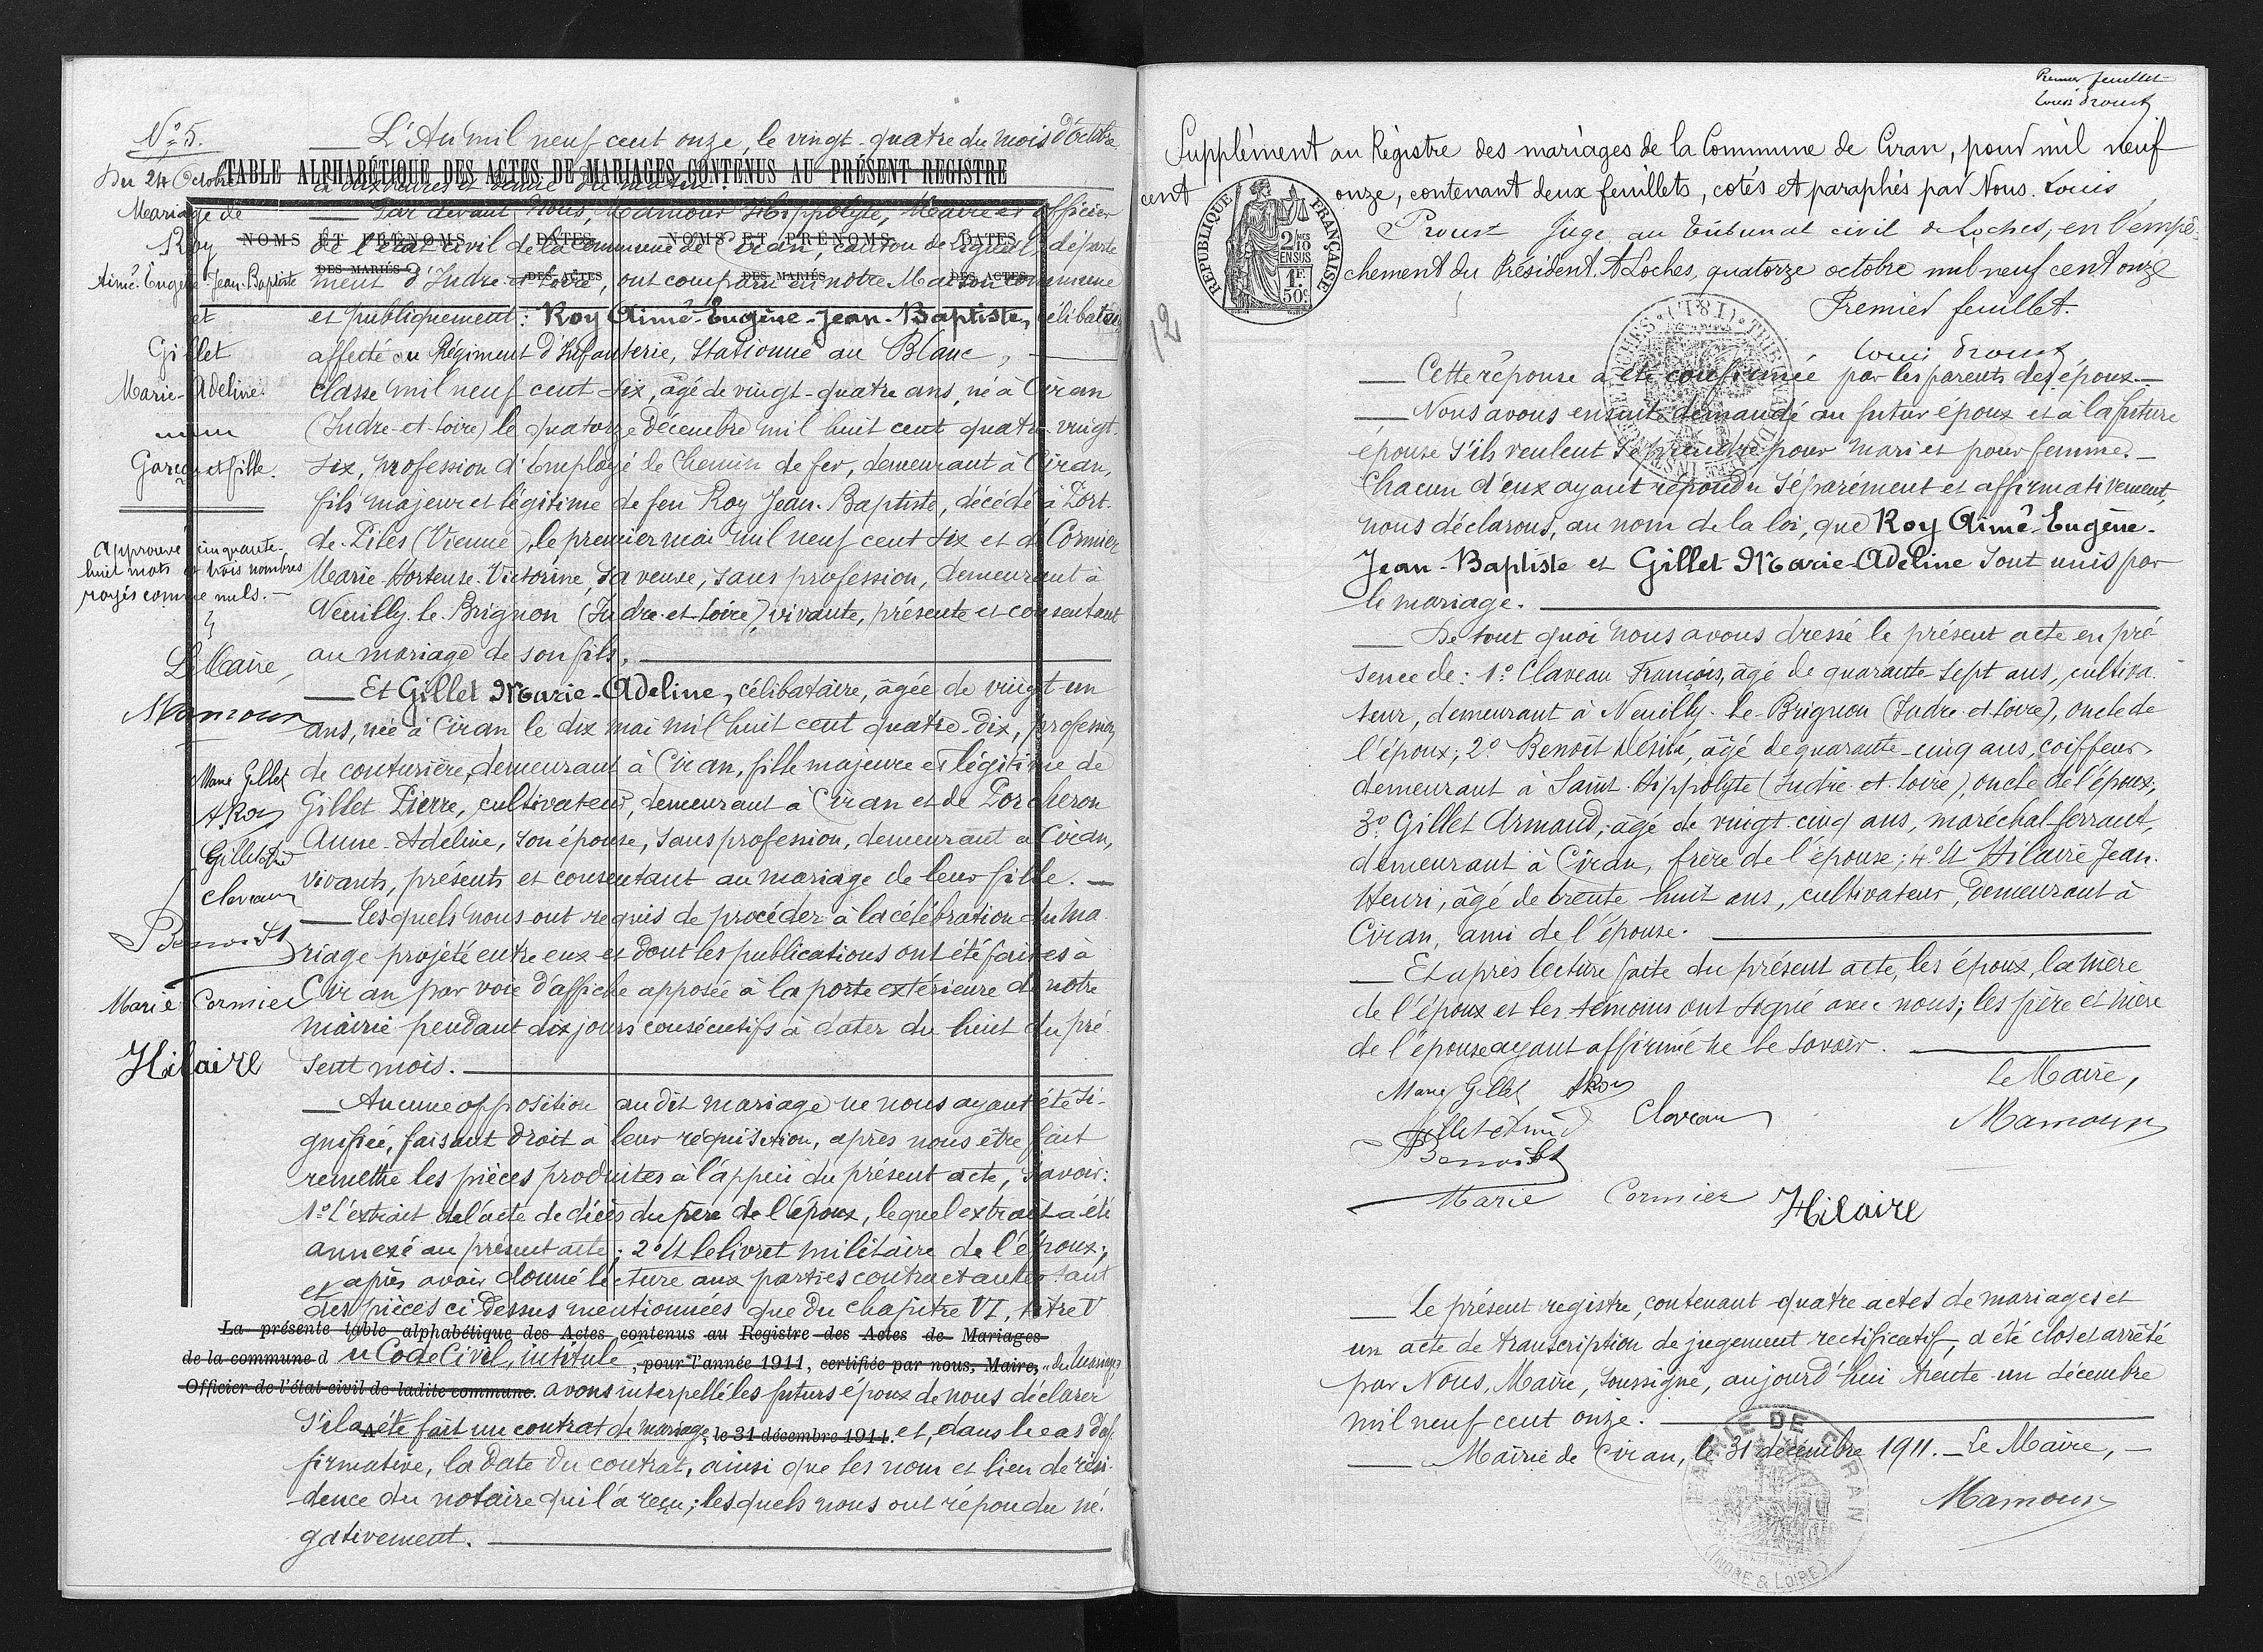 N° 5.
Du 24 Octobre
Mariage de
Roy
Aimé-Eugène-Jean-Baptiste
et
Gillet
Marie-Adeline.
Garçon et fille.
Approuvé cinquante-
huit mots et trois nombres
rayés comme nuls. —
Le Maire,
Mamour
Marie Gillet
ARoy
Gillet
Claveau
Benoist
Marie Cormier
Hilaire
L'An mil neuf cent onze, le vingt-quatre du mois d'Octobre
TABLE ALPHABÉTIQUE DES ACTES DE MARIAGES CONTENUS AU PRÉSENT REGISTRE
à dix heures et demie du matin.
Par devant Nous, Mamour Hippolyte, Maire et officier
NOMS ET PRÉNOMS DATES NOMS ET PRÉNOMS DATES
de l'état civil de la commune de Ciran, canton de Ligueil, départe
DES MARIÉS DES ACTES DES MARIÉS DES ACTES
ment d'Indre-et-Loire, ont comparu en notre Maison commune
et publiquement : Roy Aimé-Eugène-Jean-Baptiste, célibataire
affecté au Régiment d'Infanterie, stationné au Blanc,
classe mil neuf cent six, âgé de vingt-quatre ans, né à Ciran
(Indre-et-Loire) le quatorze décembre mil huit cent quatre-vingt
six, profession d'employé de chemin de fer, demeurant à Ciran,
fils majeur et légitime de feu Roy Jean-Baptiste, décédé à Port-
de-Piles (Vienne), le premier mai mil neuf cent six et de Cormier
Marie-Hortense-Victorine, sa veuve, sans profession, demeurant à
Neuilly-le-Brignon (Indre-et-Loire) vivante, présente et consentant
au mariage de son fils.
Et Gillet Marie-Adeline, célibataire, âgée de vingt-un
ans, née à Ciran le dix mai mil huit cent quatre-dix, profession
de couturière, demeurant à Ciran, fille majeure et légitime de
Gillet Pierre, cultivateur, demeurant à Ciran et de Porcheron
Anne-Adeline, son épouse, sans profession, demeurant à Ciran,
vivants, présents et consentant au mariage de leur fille. —
Lesquels nous ont requis de procéder à la célébration du ma
riage projeté entre eux et dont les publications ont été faites à
Ciran par voie d'affiche apposée à la porte extérieure de notre
mairie pendant dix jours consécutifs à dater du huit du pré
sent mois.
Aucune opposition audit mariage ne nous ayant été si-
gnifiée, faisant droit à leur réquisition, après nous être fait
remettre les pièces produites à l'appui du présent acte, savoir :
1° L'extrait de l'acte de décès du père de l'époux, lequel extrait a été
annexé au présent acte ; 2° Et le livret militaire de l'époux ;
et après avoir donné lecture aux parties contractantes tant
des pièces ci-dessus mentionnées que du chapitre VI, titre V
La présente table alphabétique des Actes contenus au Registre des Actes de Mariages
de la commune d u Code Civil, intitulé , pour l'année 1911, certifiée par nous, Maire, "du Mariage"
Officier de l'état civil de ladite commune. avons interpellé les futurs époux de nous déclarer
s'il a été fait un contrat de mariage, le 31 décembre 1911. et, dans le cas d'af
firmative, la date du contrat, ainsi que les nom et lieu de rési-
dence du notaire qui l'a reçu ; lesquels nous ont répondu né-
gativement.
Premier feuillet
Louis Proust
Supplément au Régistre des mariages de la Commune de Ciran, pour mil neuf
cent onze, contenant deux feuillets, cotés et paraphés par Nous. Louis
Proust Juge au Tribunal civil de Loches, en l'empê-
chement du Président. A Loches, quatorze octobre mil neuf cent onze
RÉPUBLIQUE FRANÇAISE
2/10
EN SUS
1F.
50c
12
Premier feuillet.
Louis Proust
Cette réponse a été confirmée par les parents des époux. —
Nous avons ensuite demandé au futur époux et à la future
épouse s'ils veulent se prendre pour mari et pour femme. —
Chacun d'eux ayant répondu séparément et affirmativement,
nous déclarons, au nom de la loi, que Roy Aimé-Eugène-
Jean-Baptiste et Gillet Marie-Adeline sont unis par
le mariage.
De tout quoi nous avons dressé le présent acte en pré
sence de : 1° Claveau François, âgé de quarante-sept ans, cultiva-
teur, demeurant à Neuilly-le-Brignon (Indre-et-Loire), oncle de
l'époux ; 2° Benoît Désiré, âgé de quarante-cinq ans, coiffeur,
demeurant à Saint-Hippolyte (Indre-et-Loire), oncle de l'époux ;
3° Gillet Armand, âgé de vingt-cinq ans, maréchal-ferrant,
demeurant à Ciran, frère de l'épouse ; 4° Et Hilaire Jean-
Henri, âgé de trente-huit ans, cultivateur, demeurant à
Ciran, ami de l'épouse.
Et après lecture faite du présent acte, les époux, la mère
de l'époux et les témoins ont signé avec nous ; les père et mère
de l'épouse ayant affirmé ne le savoir.
Le Maire,
Marie Gillet ARoy
Mamour
Claveau
Benoist
Marie Cormier Hilaire
Le présent registre, contenant quatre actes de mariages et
un acte de transcription de jugement rectificatif, a été clos et arrêté
par Nous, Maire, soussigné, aujourd'hui trente-un décembre
mil neuf cent onze.
Mairie de Ciran, le 31 décembre 1911. — Le Maire, —
Mamour
MAIRIE DE CIRAN
(INDRE & LOIRE)